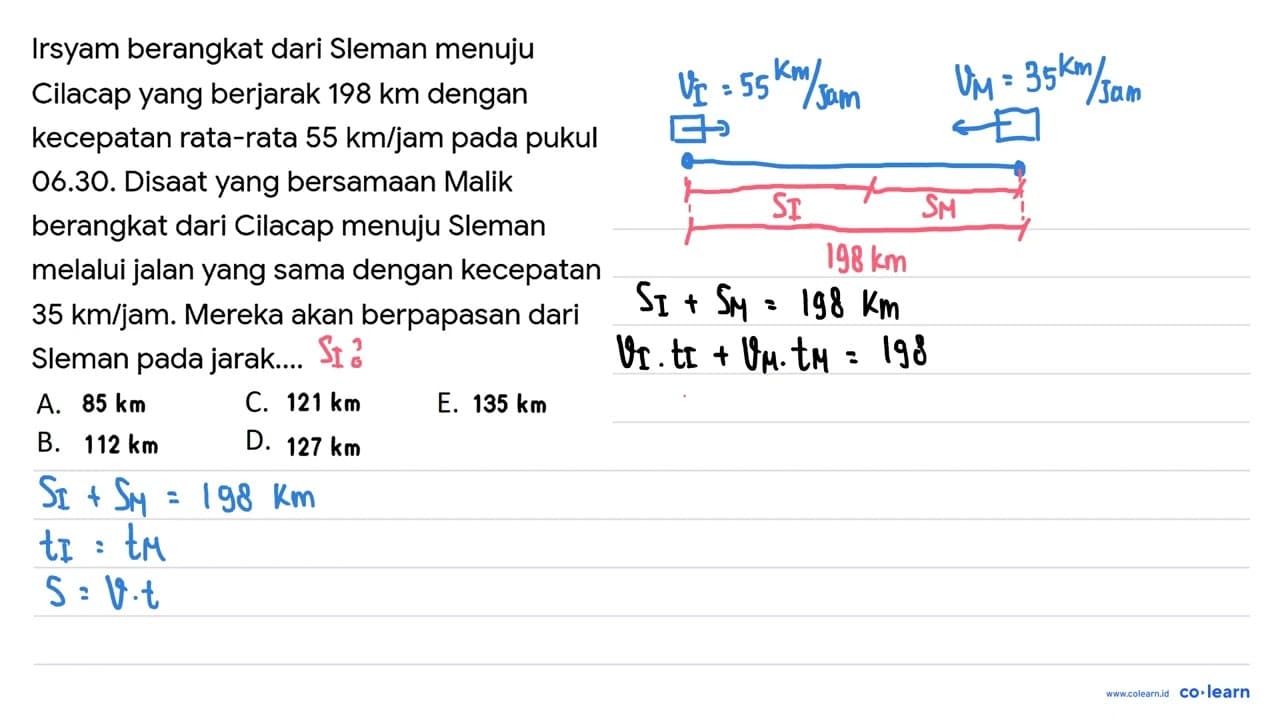 Irsyam berangkat dari Sleman menuju
Cilacap yang berjarak 198 km dengan
kecepatan rata-rata 55 km/jam pada pukul
06.30. Disaat yang bersamaan Malik
berangkat dari Cilacap menuju Sleman
melalui jalan yang sama dengan kecepatan
35 km/jam. Mereka akan berpapasan dari
Sleman pada jarak.... SI?
A. 85 km C. 121 km E. 135 km
B. 112 km D. 127 km
SI + SM = 198 Km
tI = tM
S = V.t
VI = 55 Km/Jam VM = 35 Km/Jam
SI SM
198 km
SI + SM = 198 Km
VI.tI + VM.tM = 198
www.colearn.id co·learn